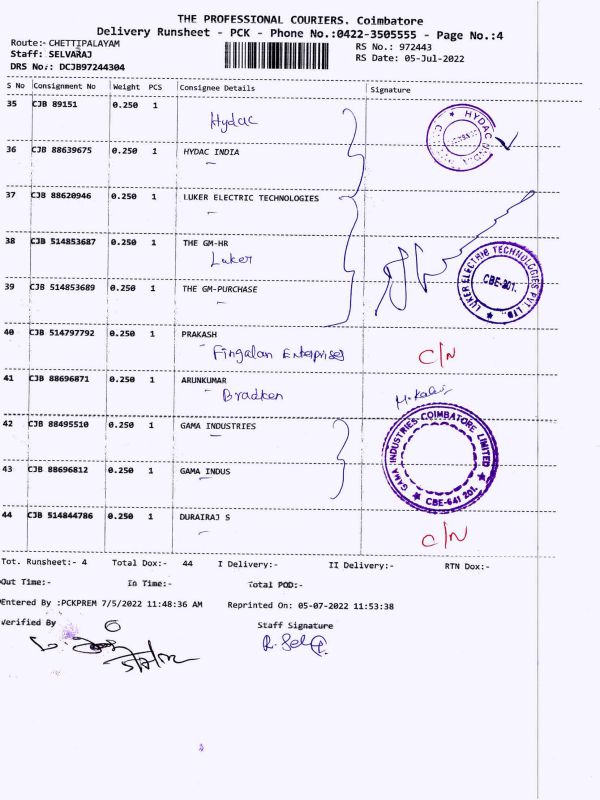 THE PROFESSIONAL COURIERS. Coimbatore
Delivery Runsheet - PCK - Phone No.:0422-3505555 - Page No.:4
Route:- CHETTIPALAYAM
RS No.: 972443
Staff: SELVARAJ
RS Date: 05-Jul-2022
DRS No.: DCJB97244304
S No Consignment No Weight PCS Consignee Details Signature
35 CJB 89151 0.250 1
Hydac
HYDAC INDIA
36 CJB 88639675 0.250 1 HYDAC INDIA
37 CJB 88620946 0.250 1 LUKER ELECTRIC TECHNOLOGIES
38 CJB 514853687 0.250 1 THE GM-HR
Luker
LUKER ELECTRIC TECHNOLOGIES PVT LTD. ★
CBE-201.
39 CJB 514853689 0.250 1 THE GM-PURCHASE
40 CJB 514797792 0.250 1 PRAKASH
Fingalan Enterprises C/N
41 CJB 88696871 0.250 1 ARUNKUMAR
Bradken
42 CJB 88495510 0.250 1 GAMA INDUSTRIES
GAMA INDUSTRIES COIMBATORE LIMITED
★ CBE-641 201. ★
43 CJB 88696812 0.250 1 GAMA INDUS
44 CJB 514844786 0.250 1 DURAIRAJ S
C/N
Tot. Runsheet:- 4 Total Dox:- 44 I Delivery:- II Delivery:- RTN Dox:-
Out Time:- In Time:- Total POD:-
Entered By :PCKPREM 7/5/2022 11:48:36 AM Reprinted On: 05-07-2022 11:53:38
Verified By Staff Signature